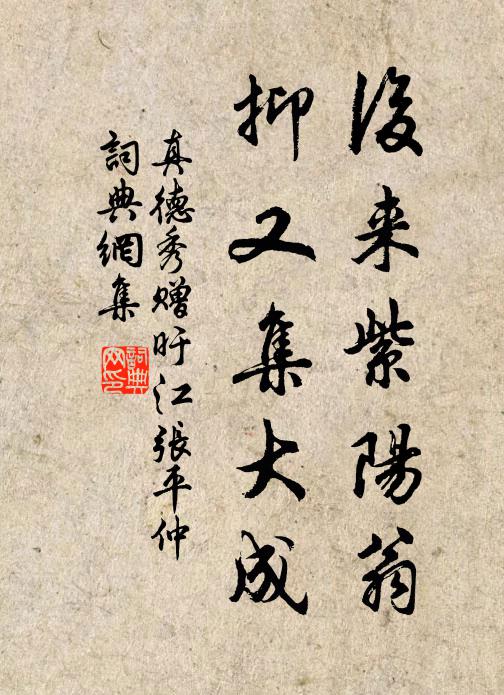 後来紫陽翁
抑又集大成
真德秀贈旴江張平仲
詞典網集
詞典网印